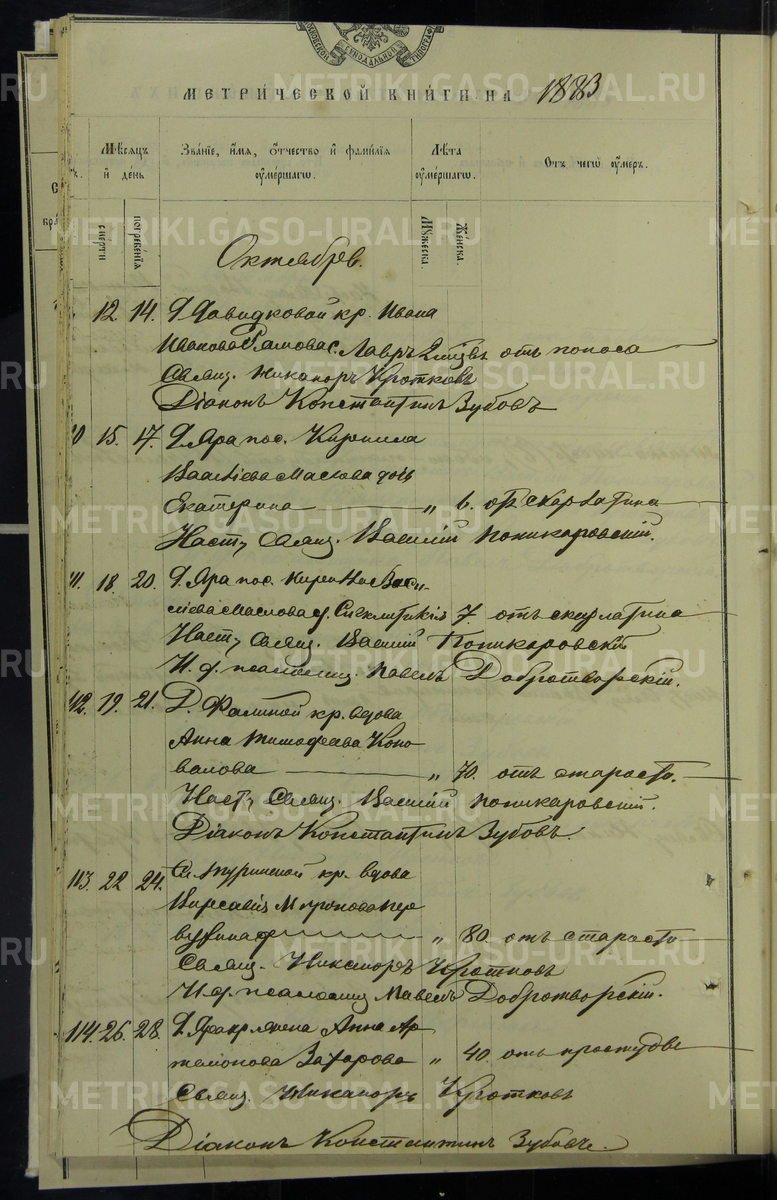 МЕТРИ́ЧЕСКОЙ КНИ́ГИ НА 1883
Мѣ́сяцъ и҆ де́нь
Зва́нїе, и҆́мѧ, ѻ҆́тчество и҆ фами́лїѧ ᲂу҆ме́ршагѡ.
Лѣ́та ᲂу҆ме́ршагѡ.
Ѿ чегѡ̀ ᲂу҆́меръ.
погребе́нїѧ
Мꙋ́жеска.
Же́нска.
Октябрь.
12. 14. Д. Давидковой кр. Ивана
Иванова с. Лавръ отъ поноса
Свящ. Никаноръ Кротковъ
Діаконъ Константинъ Зубовъ
15. 17. Д. Яра пос. Кирилла
Васильева Маслова дочь
Екатерина „ 6. отъ скарлатина
Наст. Свящ. Василій Поникаровскій.
111. 18. 20. Д. Яра пос. Васи-
ліева Маслова д. Синклитикія 7. отъ скарлатина
Наст. Свящ. Василій Поникаровскій
И. д. псаломщ. Павелъ Добротворскій.
112. 19. 21. Д. Фалиной кр. вдова
Анна Тимофеева Коно-
валова „ 70. отъ старости.
Наст. Свящ. Василій Поникаровскій.
Діаконъ Константинъ Зубовъ.
113. 22 24. Сл. Туринской кр. вдова
Вирсавія Миронова Пер
вухина „ 80. отъ старости
Свящ. Никаноръ Кротковъ
И. д. псаломщ. Павелъ Добротворскій.
114. 26. 28. Д. Яра кр. жена Анна Ар-
темонова Захарова „ 40. отъ простуды
Свящ. Никаноръ Кротковъ
Діаконъ Константинъ Зубовъ.
METRIKI.GASO-URAL.RU